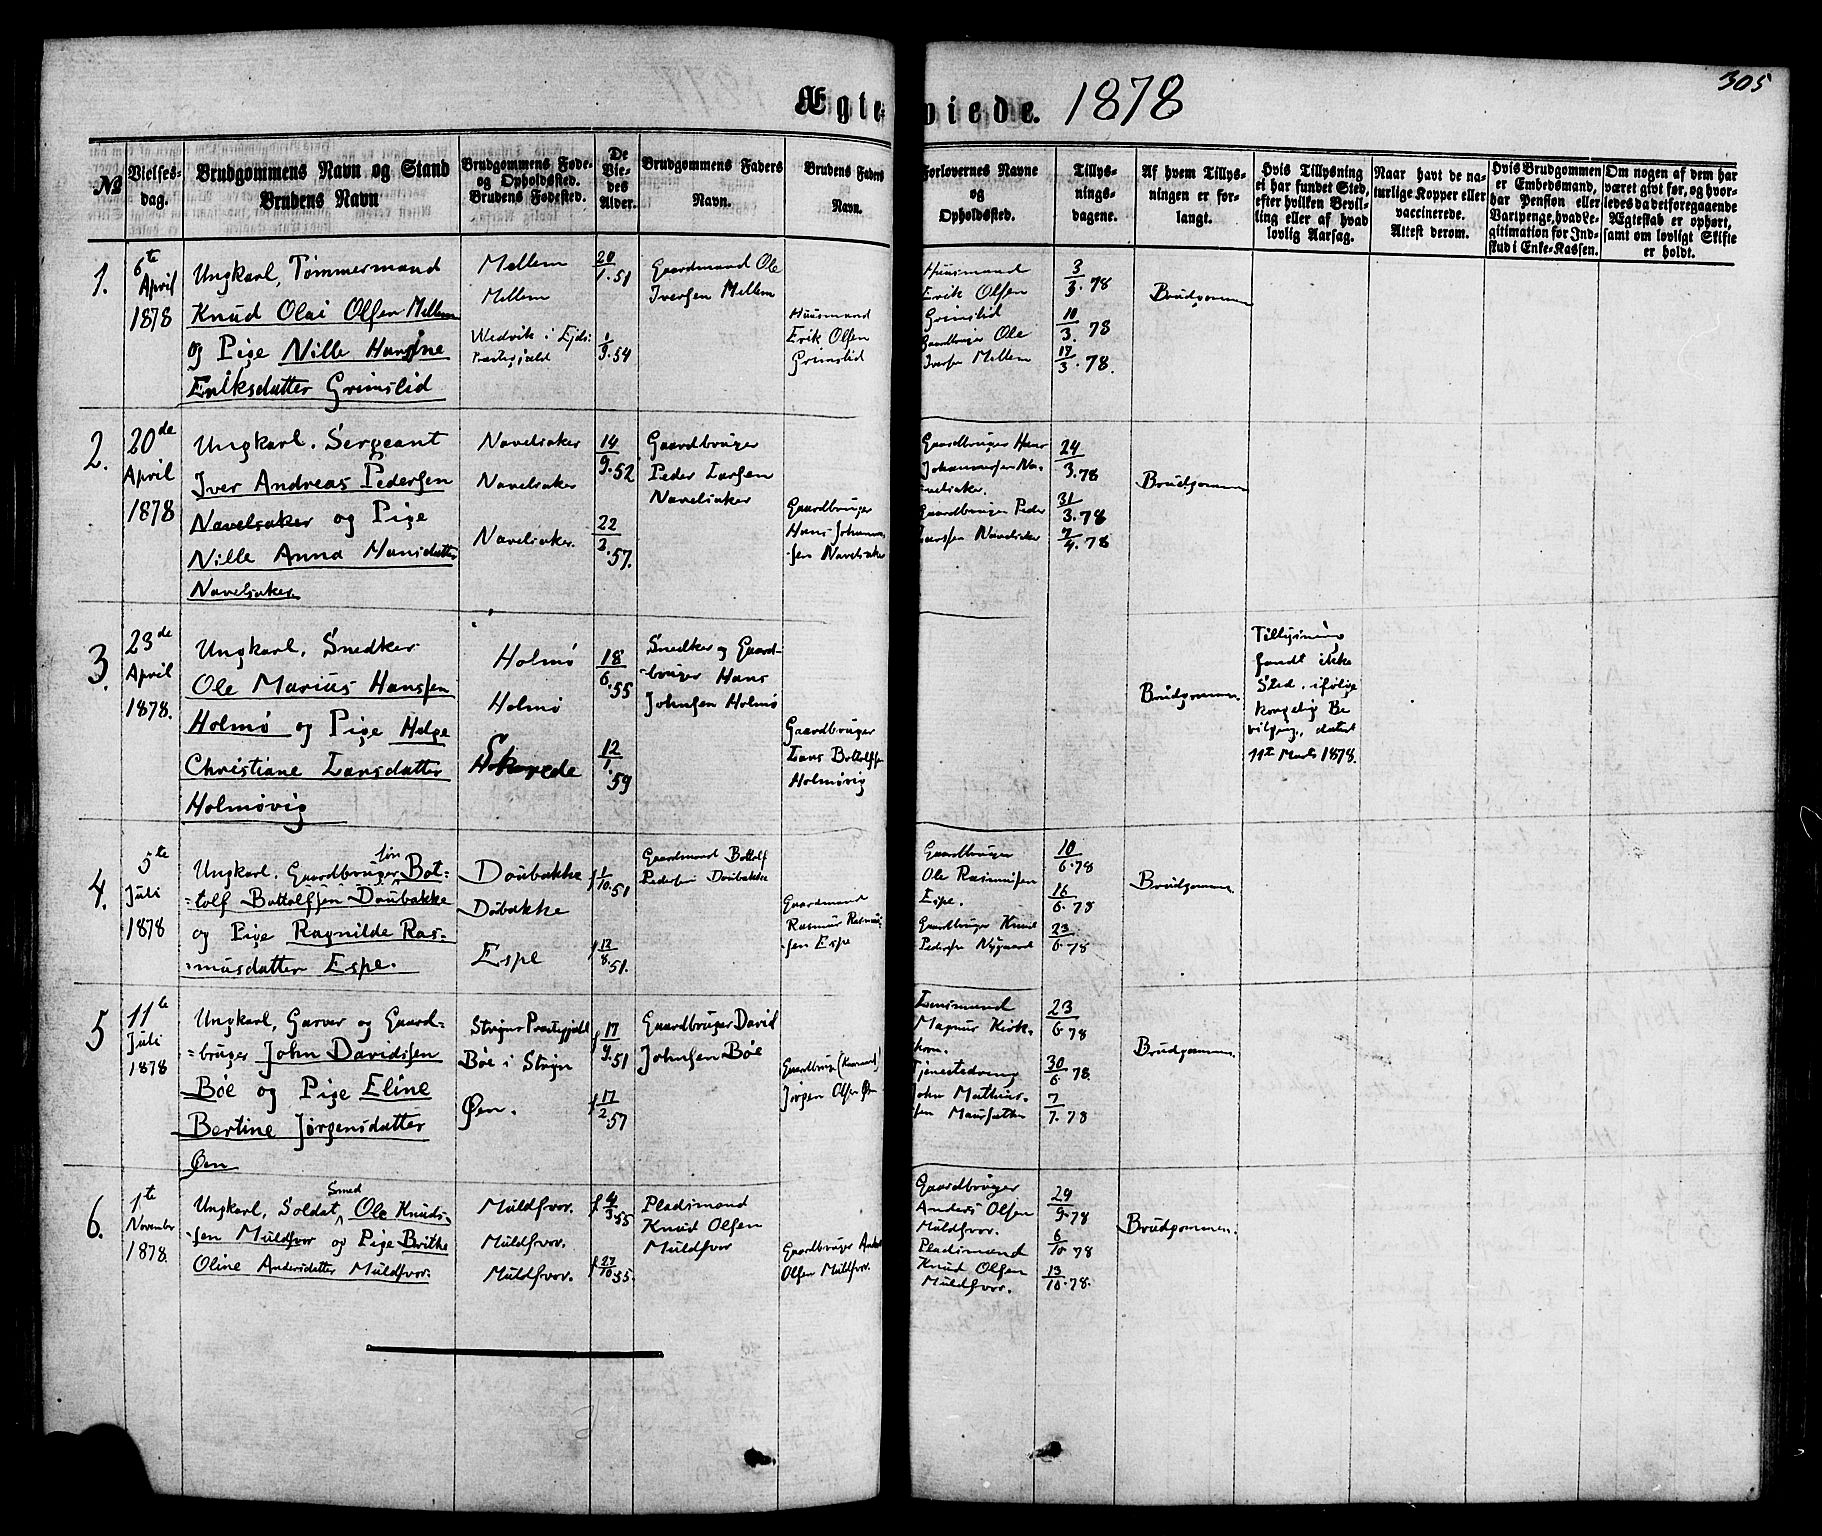 305
Ægteviede. 1878
№
Vielses-
dag.
Brudgommens Navn og Stand
Brudens Navn
Brudgommens Føde-
og Opholdssted.
Brudens Fødested.
De
Vie-
des
Alder.
Brudgommens Faders
Navn.
Brudens Faders
Navn.
Forlovernes Navne
og
Opholdssted.
Tillys-
nings-
dagene.
Af hvem Tillys-
ningen er for-
langt.
Hvis Tillysning
ei har fundet Sted,
efter hvilken Bevil-
ling eller af hvad
lovlig Aarsag.
Naar havt de na-
turlige Kopper eller
vaccinerede.
Attest derom.
Hvis Brudgommen
er Embedsmand,
har Pension eller
Vartpenge, hvad Le-
gitimation for Ind-
skud i Enke-Kassen.
Om nogen af dem har
været gift før, og hvor-
ledes da det foregaaende
Ægteskab er ophørt,
samt om lovligt Skifte
er holdt.
1.
6te
April
1878
Ungkarl, Tømmermand
Knud Olai Olsen Mellem
og Pige Nille Hansine
Eriksdatter Grimslid
Mellem
Mellem
Wedvik i Ejds
Præstegjæld
20/1.51
1/9.54
Gaardmand Ole
Iversen Mellem
Huusmand
Erik Olsen
Grimslid
Huusmand
Erik Olsen
Grimslid
Gaardbruger Ole
Iversen Mellem
3/3.78
10/3.78
17/3.78.
Brudgommen
2.
20de
April
1878
Ungkarl. Sergeant
Iver Andreas Pedersen
Navelsaker og Pige
Nille Anna Hansdatter
Navelsaker
Navelsaker
Navelsaker
Navelsaker.
14/9.52
22/2.57.
Gaardbruger
Peder Larsen
Navelsaker
Gaardbruger
Hans Johannes-
-sen Navelsaker
Gaardbruger Hans
Johannessen Na-
velsaker.
Gaardbruger Peder
Larssen Navelsaker
24/3.78
31/3.78
7/4.78
Brudgommen
3.
23de
April
1878.
Ungkarl, Snedker
Ole Marius Hanssen
Holmø og Pige Helge
Christiane Larsdatter
Holmøvig
Holmø
Holmø
Skrede
18/6.55
12/1.59
Snedker og Gaard-
-bruger Hans
Johnsen Holmø
Gaardbruger
Lars Bottolfsen
Holmøvig
Brudgommen.
Tillysning
fandt ikke
Sted, ifølge
kongelig Be
vilging, datert
11te Marts 1878.
4.
5te
Juli
1878
Ungkarl, Gaardbrugersøn Bot-
-tolf Bottolfsen Doubakke
og Pige Ragnilde Ras-
-musdatter Espe.
Doubakke
Dobakke
Espe
f 1/10.51
f 12/8.51.
Gaardmand Bottolf
Pedersen Doubakke
Gaardmand
Rasmus Rasmus-
-sen Espe
Gaardbruger
Ole Rasmussen
Espe.
Gaardbruger Knud
Pedersen Nygaard
10/6.78
16/6.78
23/6.78
Brudgommen.
5
11te
Juli
1878
Ungkarl, Garver og Gaard-
-bruger John Davidssen
Bøe og Pige Eline
Bertine Jørgensdatter
Øen
Stryns Præstegjæld
Bøe i Stryn
Øen.
f 17/9.51
f 17/2.57
Gaardbruger David
Johnsen Bøe
Jørgen Olsen Øen
Lensmand
Magnus Kirk-
horn.
Tjenestedreng
John Mathias-
sen Maursætter
23/6.78
30/6.78.
7/7.78
Brudgommen.
6.
1te
November
1878.
Ungkarl, Soldat, Smed Ole Knuds-
-sen Muldsvor og Pige Brithe
Oline Andersdatter Muldsvor.
Muldsvor.
Muldsvor.
Muldsvor.
f 4/3.55
f 27/10.55.
Pladsmand
Knud Olsen
Muldsvor
Gaardbruger Anders
Olsen Muldsvor.
Gaardbruger
Anders Olsen
Muldsvor.
Pladsmand
Knud Olsen
Muldsvor.
29/9.78
6/10.78
13/10.78.
Brudgommen.